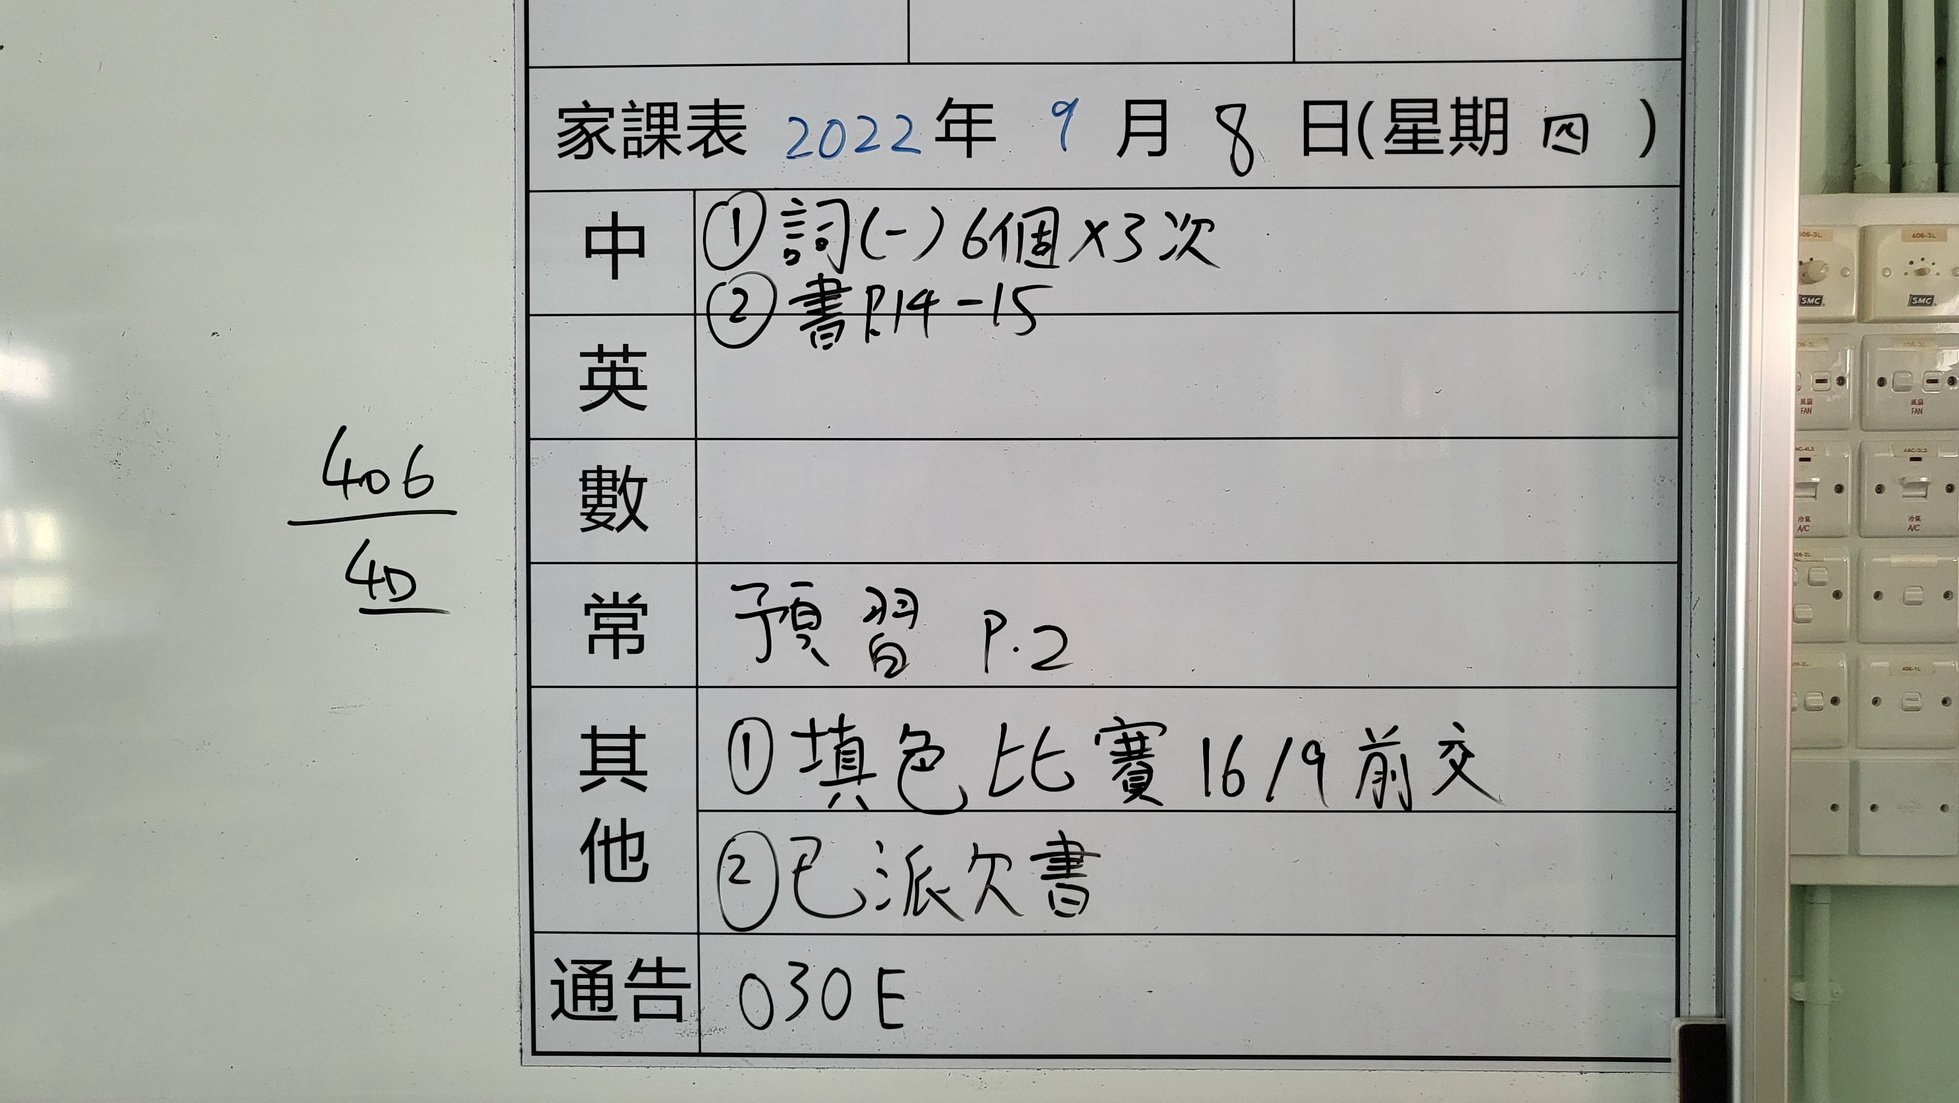 家課表 2022年 9月8日(星期四)
中
①詞(一)6個×3次
②書P.14-15
英
數
常
預習 P.2
其他
①填色比賽16/9前交
②已派欠書
通告
030E
406
4D
SMC
SMC
風扇
FAN
風扇
FAN
冷氣
A/C
冷氣
A/C